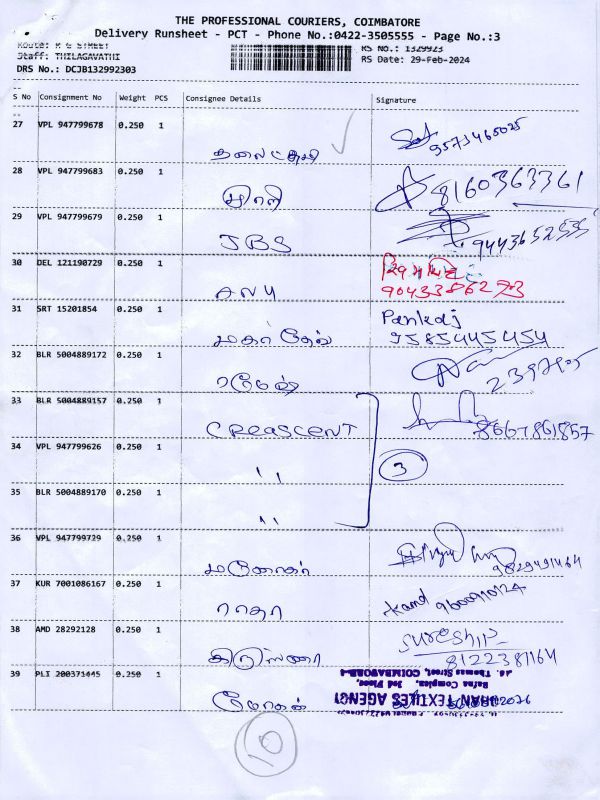 THE PROFESSIONAL COURIERS, COIMBATORE
Delivery Runsheet - PCT - Phone No.:0422-3505555 - Page No.:3
Route: R G STREET
Staff: THILAGAVATHI
RS No.: 1329923
RS Date: 29-Feb-2024
DRS No.: DCJB132992303
S No Consignment No Weight PCS Consignee Details Signature
27 VPL 947799678 0.250 1
9571465025
28 VPL 947799683 0.250 1
8160363361
29 VPL 947799679 0.250 1
JBS
9443652535
30 DEL 121190729 0.250 1
9043386273
31 SRT 15201854 0.250 1
Pankaj
மகாதேவ் 9585445454
32 BLR 5004889172 0.250 1
ரமேஷ்
33 BLR 5004889157 0.250 1
CREASCENT 8667861857
34 VPL 947799626 0.250 1
" 3
35 BLR 5004889170 0.250 1
"
36 VPL 947799729 0.250 1
மனோகர் 9829491464
37 KUR 7001086167 0.250 1
ராதா
38 AMD 28292128 0.250 1
SURESH
கிருஸ்ணா 8122381164
39 PLI 200371445 0.250 1
மோகன்
TEXTILES AGENCY
Ratna Complex, 3rd Floor,
Thomas Street, COIMBATORE-1
10